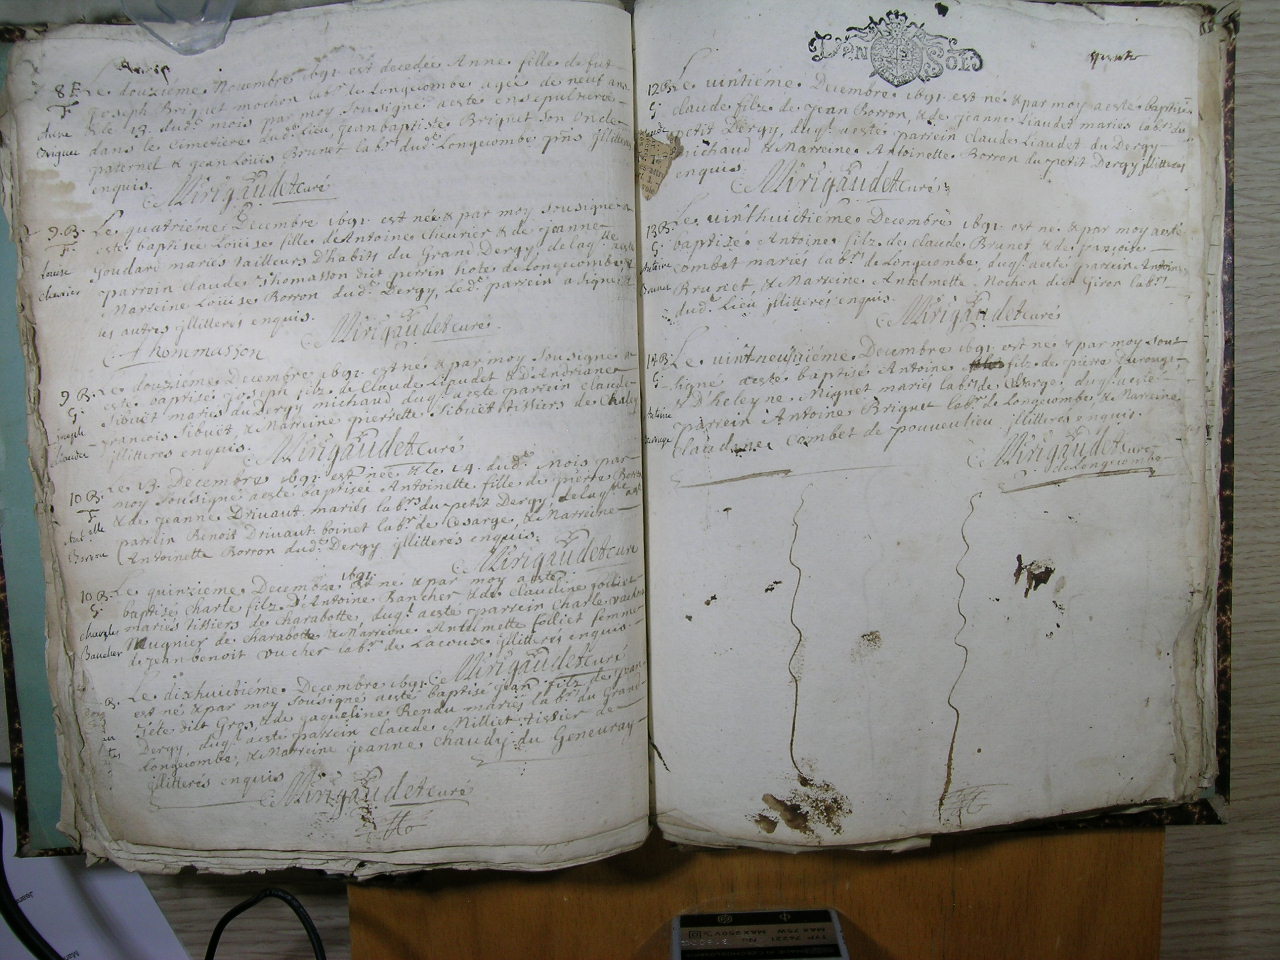 8 F
F
Anne
Briguet
Le douziéme Nouembre 1691 est decedée Anne fille de fut
Joseph Briguet mochon labr. de Longecombe agée de neuf ans
& le 13. dudt. mois par moy soussigné a esté ensepulturée
dans le Cimetiére dudt. lieu, jeanbaptiste Briguet son oncle
paternel & jean Louis Brunet labr. dudt. Longecombe pnts jllitteres
enquis. Mirigaudet curé
9. B.
F.
Louise
cheurier
Le quatriéme Decembre 1691. est née & par moy sousigné a
esté baptisée Louise fille d'Antoine cheurier & de jeanne
goudard mariés tailleurs d'habits du Grand Dergy de laqlle a esté
parroin claude Thomasson dict perrin hote de Longecombe &
Marreine Louise Borron dudt. Dergy, Ledt. parrein a signé &
les autres jllitteres enquis. Mirigaudet curé.
Thommasson
9 B.
G.
Joseph
Liaudet
Le douziéme Decembre 1691. est né & par moy sousigné a
esté baptisé joseph filz de Claude Liaudet & d'Andrianne
Sibuet mariés du Dergy michaud duql. a esté parrein claude
francois Sibuet, & Marreine pierrette Sibuet tissiers de
jllitteres enquis. Mirigaudet curé
10 B.
F
Antlle
Borron
Le 13. Decembre 1691. est née & le 14. dudt. mois par
moy sousigné a esté baptisée Antoinette fille de pierre Borron
& de jeanne Druaut mariés labrs. du petit Dergy de laqlle a esté
parrein Benoit Druaut boinet labr. de Cesarge, & Marreine
Antoinette Borron dudt. Dergy jllitteres enquis.
Mirigaudet curé
10 B.
G.
charles
Bancher
Le quinziéme Decembre 1691. est né & par moy a esté
baptisé charle filz D'Antoine Bancher & de claudine foilliet
mariés tissiers de charabotte, duql. a esté parrein charle
Mugnier de charabotte & Marreine Antoinette foilliet femme
de jean benoit Vucher labr. de Lacoux jllitteres enquis.
Mirigaudet curé
B.
Le dixhuictiéme Decembre 1691.
est né & par moy sousigné a esté baptisé jean filz de jean
Tété dict Gros, & de jaqueline Rendu mariés labrs du Grand
Dergy, duql. a esté parrein claude Milliet tissier de
Longecombe, & Marreine jeanne chaudy du Geneuray
jllitterés enquis
Mirigaudet curé
UN SOL
12 B.
G.
Claude
Le vintiéme Decembre 1691. est né & par moy a esté baptisé
claude filz de jean Borron, & de jeanne Liaudet mariés labrs. du
petit Dergy, duql. a esté parrein claude Liaudet du Dergy
michaud & Marreine Antoinette Borron du petit Dergy jllitteres
enquis Mirigaudet curé
13 B.
G.
Antoine
Brunet
Le vinthuictiéme Decembre 1691. est né & par moy a esté
baptizé Antoine filz de claude Brunet & de
combet mariés labrs. de Longecombe, duql. a esté parrein Antoine
Brunet, & Marreine Antelmette Mochon dict Giron labrs.
dudt. Lieu jllitterés enquis. Mirigaudet curé
14 B.
G.
Antoine
Le vintneufuiéme Decembre 1691. est né & par moy sous
signé a esté baptisé Antoine filz de pierre
& D'heleyne Miguet mariés labrs. de Cesarge duql. a esté
parrein Antoine Briguet labr. de Longecombe, & Marreine
Claudine Combet de pouueulieu jllitterés enquis.
Mirigaudet curé
de Longecombe